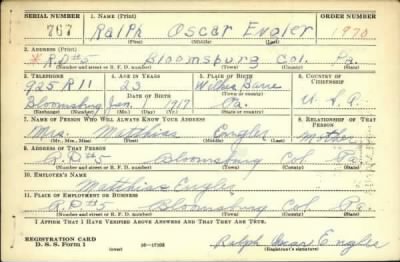 SERIAL NUMBER 1. NAME (Print) ORDER NUMBER
767 Ralph Oscar Engler 1970
(First) (Middle) (Last)
2. ADDRESS (Print)
* R.D#5 Bloomsburg Col. Pa.
(Number and street or R. F. D. number) (Town) (County) (State)
3. TELEPHONE 4. AGE IN YEARS 5. PLACE OF BIRTH 6. COUNTRY OF CITIZENSHIP
925R11 23 Wilkes Barre
DATE OF BIRTH (Town or county)
Bloomsburg Jan. 1 1917 Pa. U.S.A.
(Exchange) (Number) (Mo.) (Day) (Yr.) (State or country)
7. NAME OF PERSON WHO WILL ALWAYS KNOW YOUR ADDRESS 8. RELATIONSHIP OF THAT PERSON
Mrs. Matthias Engler Mother
(Mr., Mrs., Miss) (First) (Middle) (Last)
9. ADDRESS OF THAT PERSON
R.D#5 Bloomsburg Col. Pa.
(Number and street or R. F. D. number) (Town) (County) (State)
10. EMPLOYER'S NAME
Matthias Engler
11. PLACE OF EMPLOYMENT OR BUSINESS
R.D#5 Bloomsburg Col. Pa.
(Number and street or R. F. D. number) (Town) (County) (State)
I AFFIRM THAT I HAVE VERIFIED ABOVE ANSWERS AND THAT THEY ARE TRUE.
REGISTRATION CARD
D. S. S. Form 1 (over) 16-17105 Ralph Oscar Engler
(Registrant's signature)